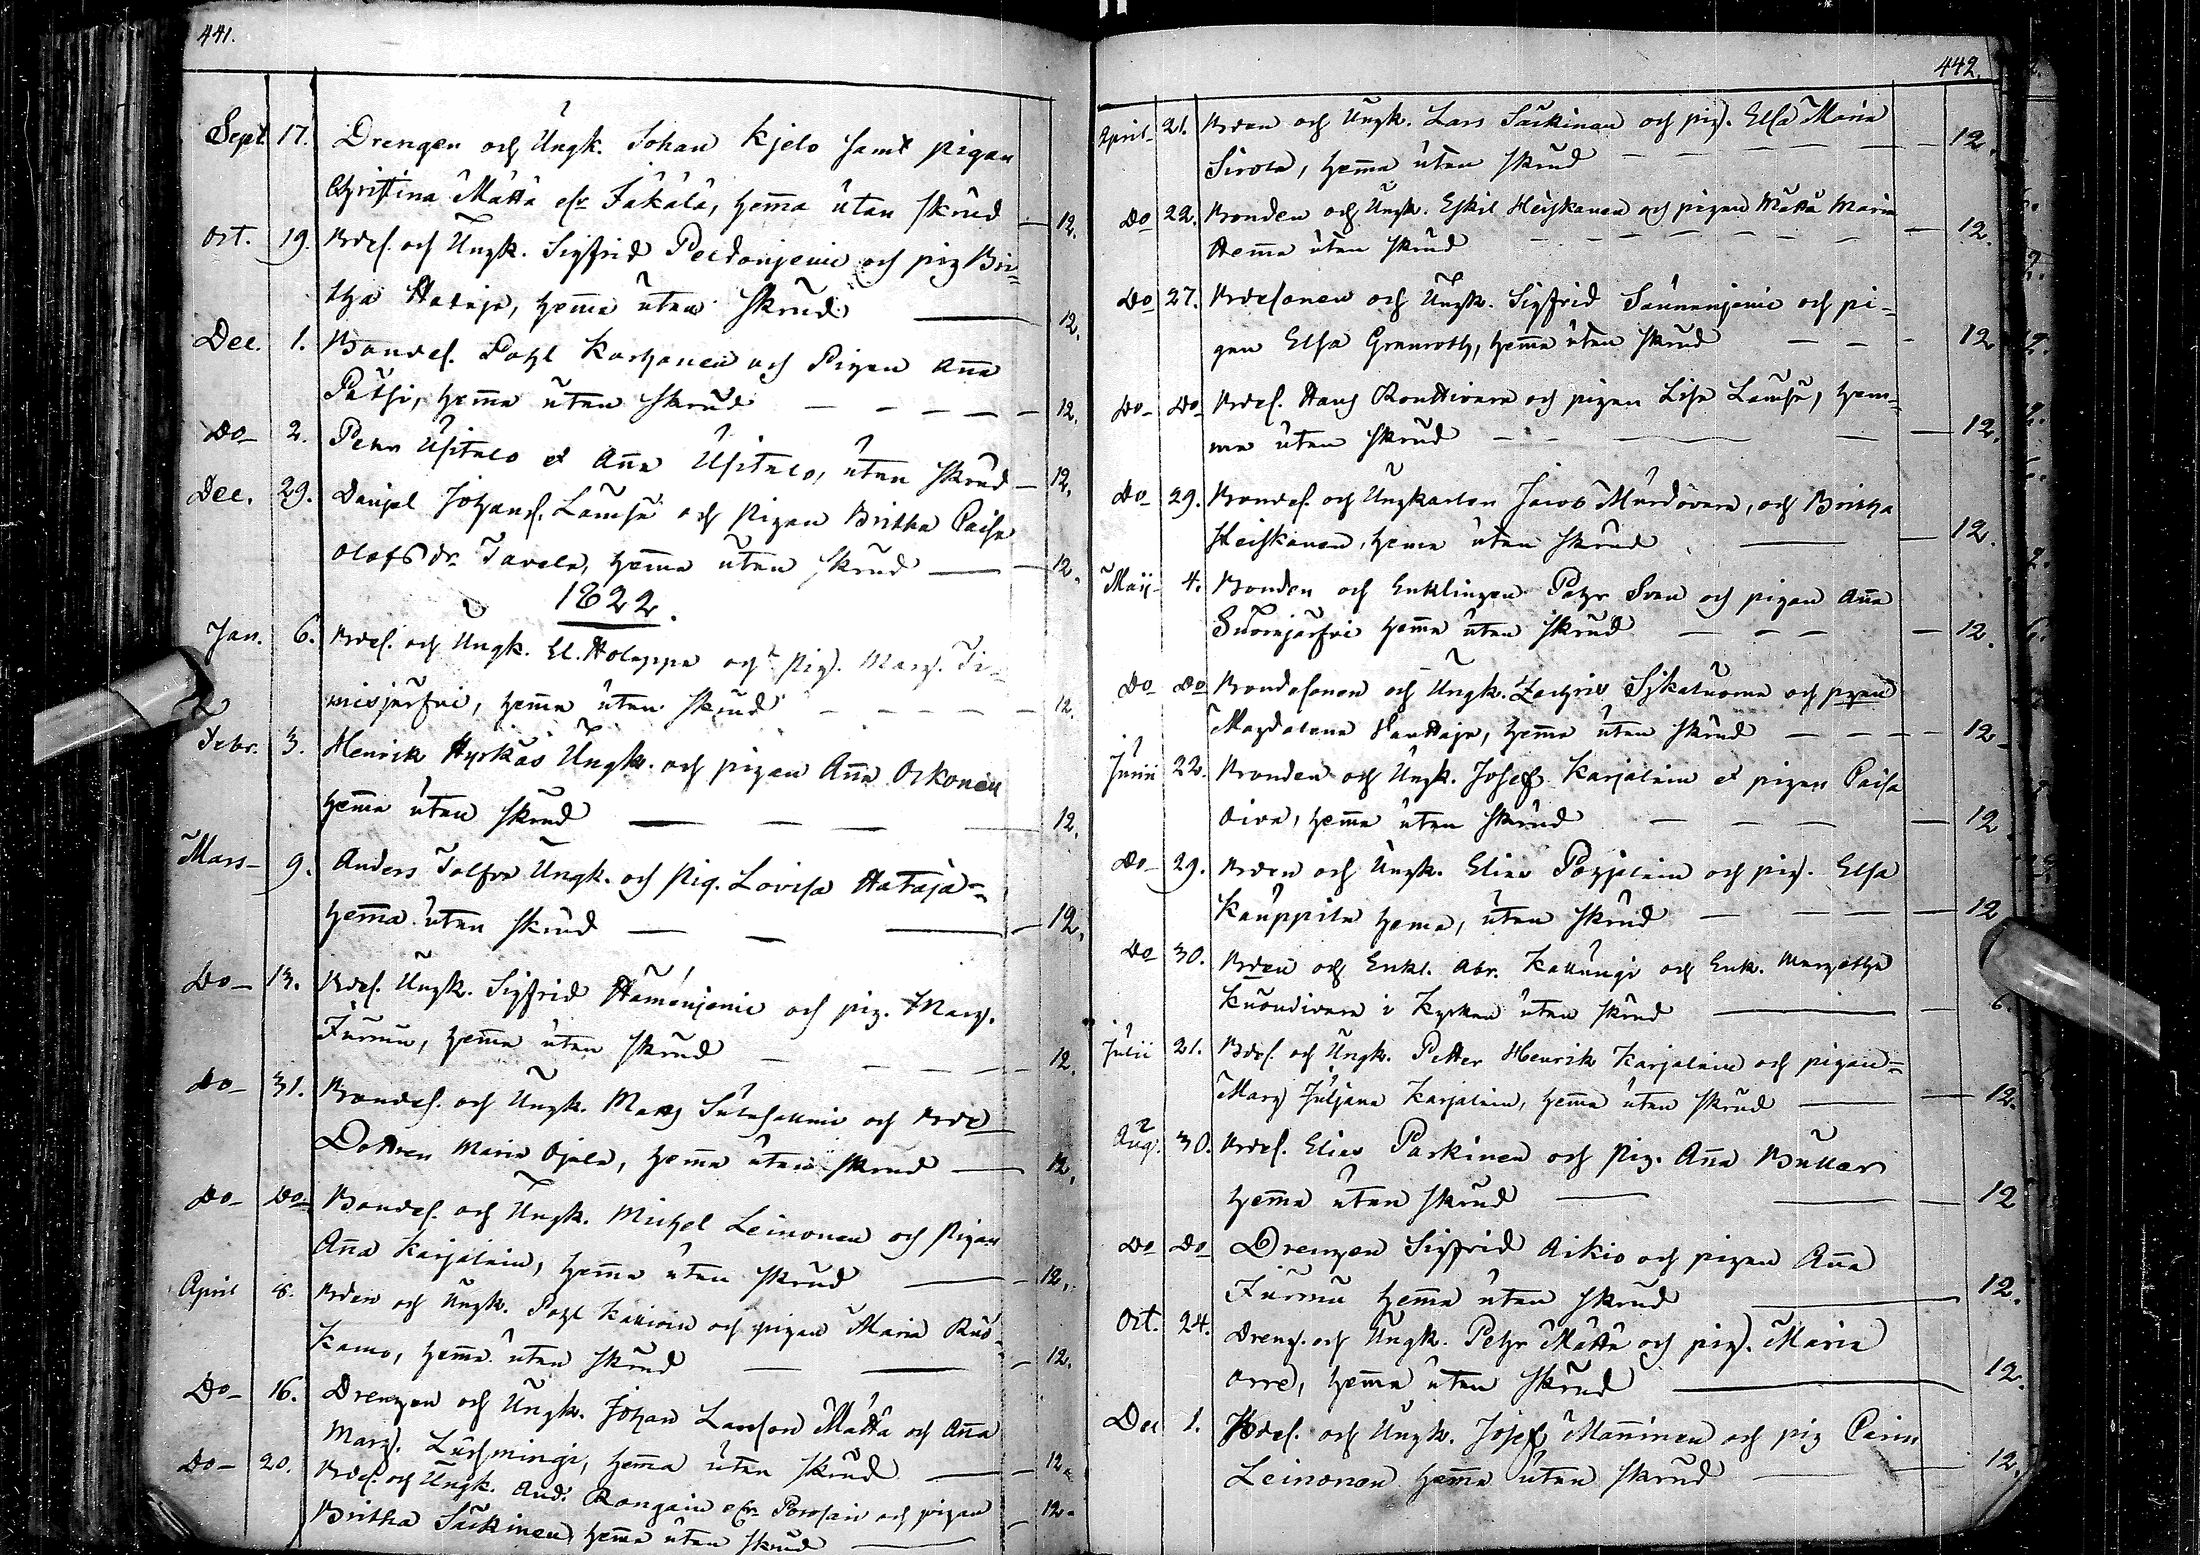 441.
Sept. 17. Drengen och Ungk. Johan Kjelo samt pigan
Christina Mättä elr Jäkälä, hema utan skrud — 12.
Oct. 19. Bdes. och Ungk. Sigfrid Peldoniemi och pig Bri=
tha Hataja, hema utan skrud — 12.
Dec. 1. Bondes. Pohl Karhonen och Pigan Aña
Pätsi, hema utan skrud — 12.
Do 2. Petter Usitalo et Aña Usitalo, utan skrud — 12.
Dec. 29. Daniel Johans. Lämsä och pigan Britha Caisa
Olofsdr Tavela, hema utan skrud — 12.
1822.
Jan. 6. Bdes. och Ungk. El. Holappa och pig. Marg. Ti=
misjärfvi, hema utan skrud — 12.
Febr. 3. Henrik Hyrkäs Ungk. och pigan Aña Oikonen
hema utan skrud — 12.
Mars 9. Anders Tolfva Ungk. och Pig. Lovisa Hataja=
hema utan skrud — 12.
Do 13. Bdes. Ungk. Sigfrid Hämänjemi och pig. Marg.
Jurmu, hema utan skrud — 12.
Do 31. Bondes. och Ungk. Mats Sulasalmi och Bde
Dottren Maria Ojala, hema utan skrud — 12.
Do Do Bondes. och Ungk. Michel Leinonen och Pigan
Aña Karjalain, hema utan skrud — 12.
April 8. Bden och Ungk. Pohl Kaivoin och pigan Maria Ruo-
kamo, hema utan skrud — 12.
Do 16. Drengen och Ungk. Johan Larsson Mättä och Aña
Marg. Lusmingi, hema utan skrud — 12.
Do 20. Bdes. och Ungk. And. Rongain elr Porosain och pigan
Britha Säckinen, hema utan skrud — 12.
442.
April 21. Bden och Ungk. Lars Säckinen och pig. Elsa Maria
Sirola, hema utan skrud — 12.
Do 22. Bonden och Ungk. Eskil Heiskanen och pigan Mätta Maria
Hema utan skrud — 12.
Do 27. Bdesonen och Ungk. Sigfrid Saunanjemi och pi=
gan Elsa Granroth, hema utan skrud — 12
Do Do Bdes. Hans Rontivara och pigan Lisa Lämsä, hem=
ma utan skrud — 12.
Do 29. Bondes. och Ungkarlen Jacob Murdovara, och Britha
Heiskanen, hema utan skrud — 12.
Maij 4. Bonden och Enklingen Pehr Svan och pigan Aña
Suomijärfvi hema utan skrud — 12.
Do Do Bondesonen och Ungk. Zachris Sykatuoma och pigan
Magdalena Hauttaja, hema utan skrud — 12
Junii 22. Bonden och Ungk. Josef Karjalain et pigan Caisa
Oiva, hema utan skrud — 12
Do 29. Bden och Ungk. Elias Pohjalain och pig. Elsa
Kauppila hema, utan skrud — 12
Do 30. Bden och Enkl. Abr. Kallungi och Enk. Margetha
Kuondivara i Kyrkan utan skrud — 6.
Julii 21. Bdes. och Ungk. Petter Henrik Karjalain och pigan=
Marg Juljana Karjalain, hema utan skrud — 12.
Aug. 30. Bdes. Elias Parkinen och Pig. Aña Buller
hema utan skrud — 12
Do Do Drengen Sigfrid Aikio och pigan Aña
Jurmu hema utan skrud — 12.
Oct. 24. Dreng. och Ungk. Pehr Mätta och pig. Maria
Orre, hema utan skrud — 12.
Dec 1. Bdes. och Ungk. Josef Manninen och pig Carin
Leinonen hema utan skrud — 12.